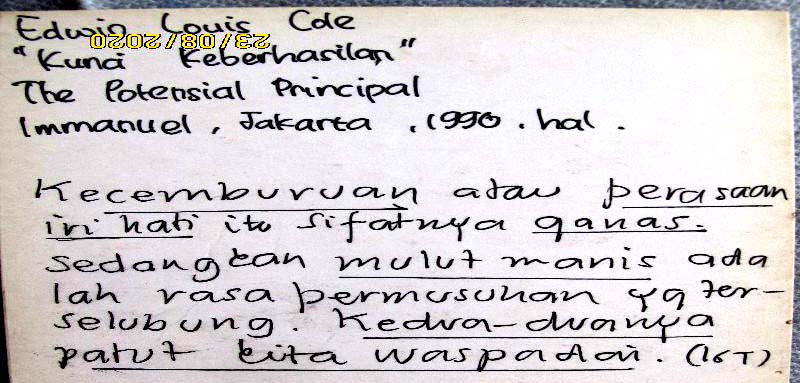 Edwin Louis Cole
23/08/2020
"Kunci Keberhasilan"
The Potensial Principal
Immanuel, Jakarta, 1990. hal.
Kecemburuan atau perasaan
iri hati itu sifatnya ganas.
Sedangkan mulut manis ada
lah rasa permusuhan yg ter-
selubung. Kedua-duanya
patut kita waspadai. (IGT)